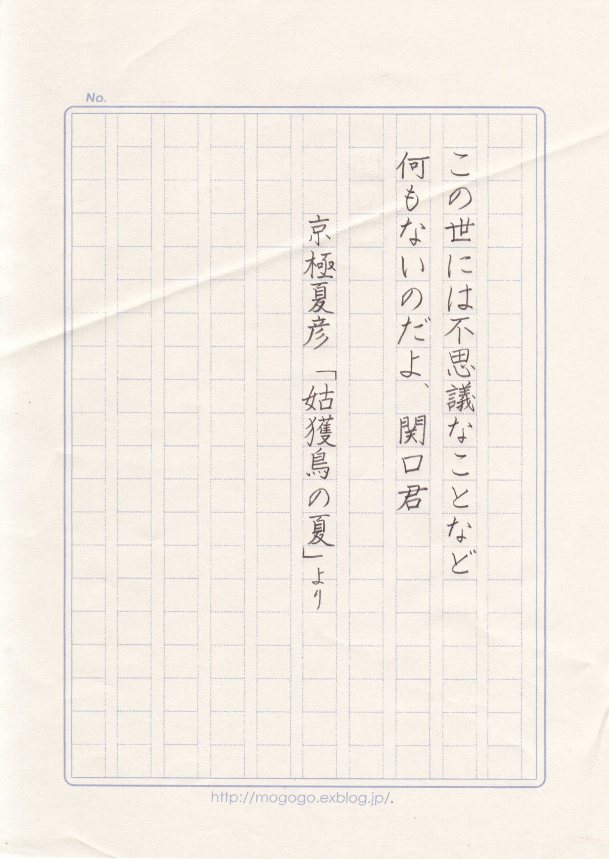 No.
この世には不思議なことなど
何もないのだよ、関口君
京極夏彦「姑獲鳥の夏」より
http://mogogo.exblog.jp/.